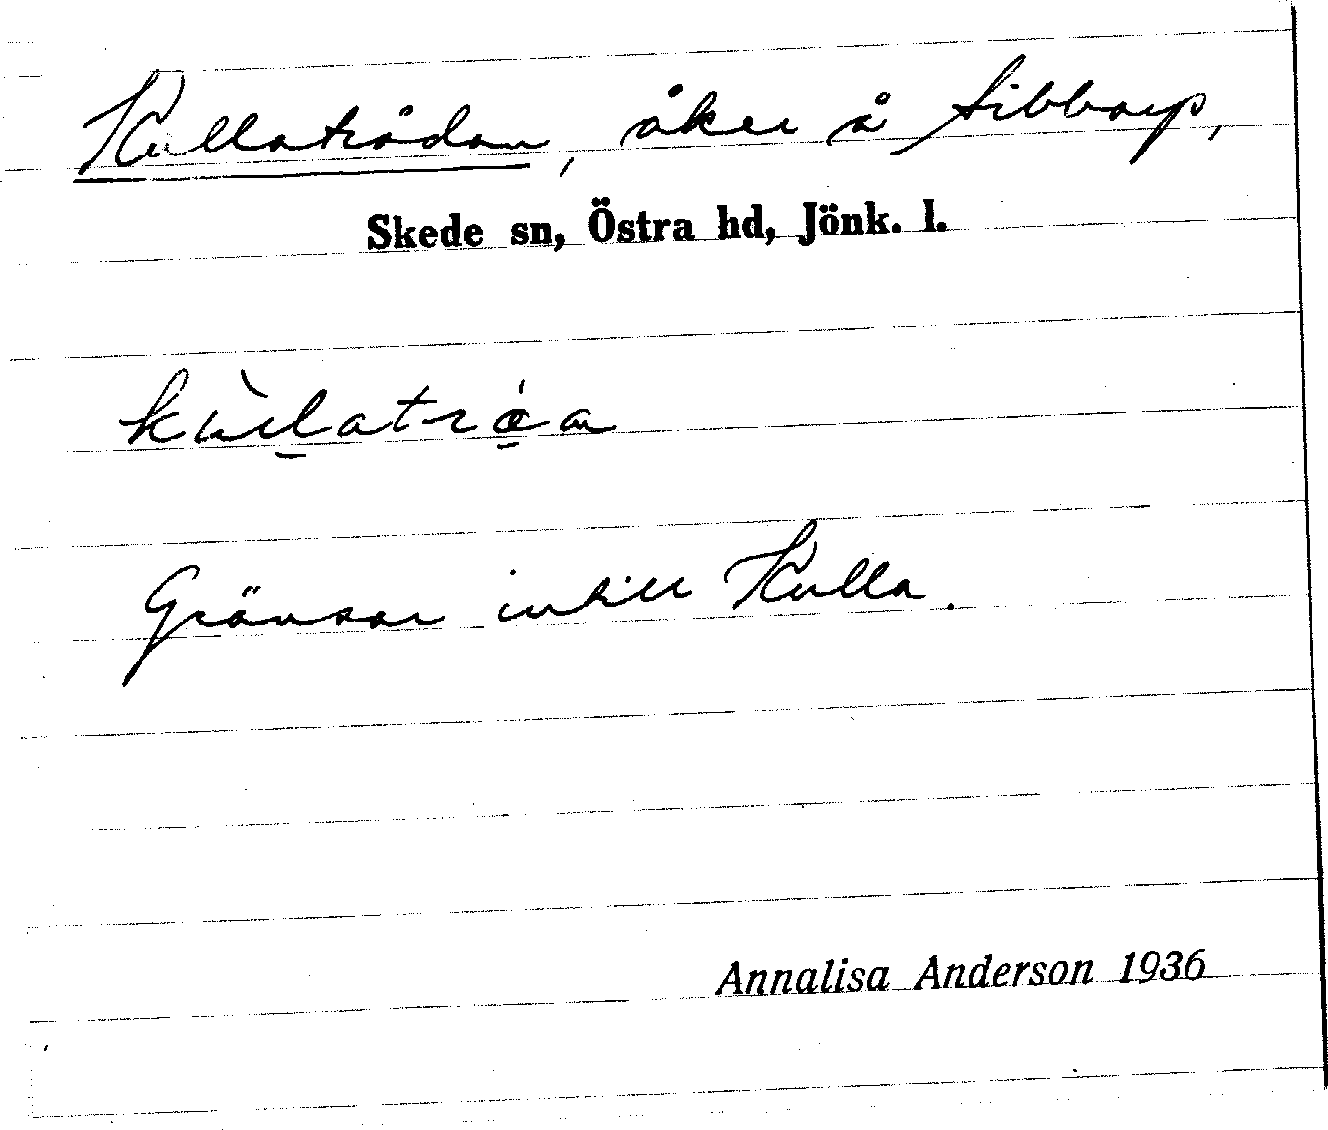 Kullatrådan, åker å Sibbarp,
Skede sn, Östra hd, Jönk. l.
Gränsar intill Kulla.
Annalisa Anderson 1936